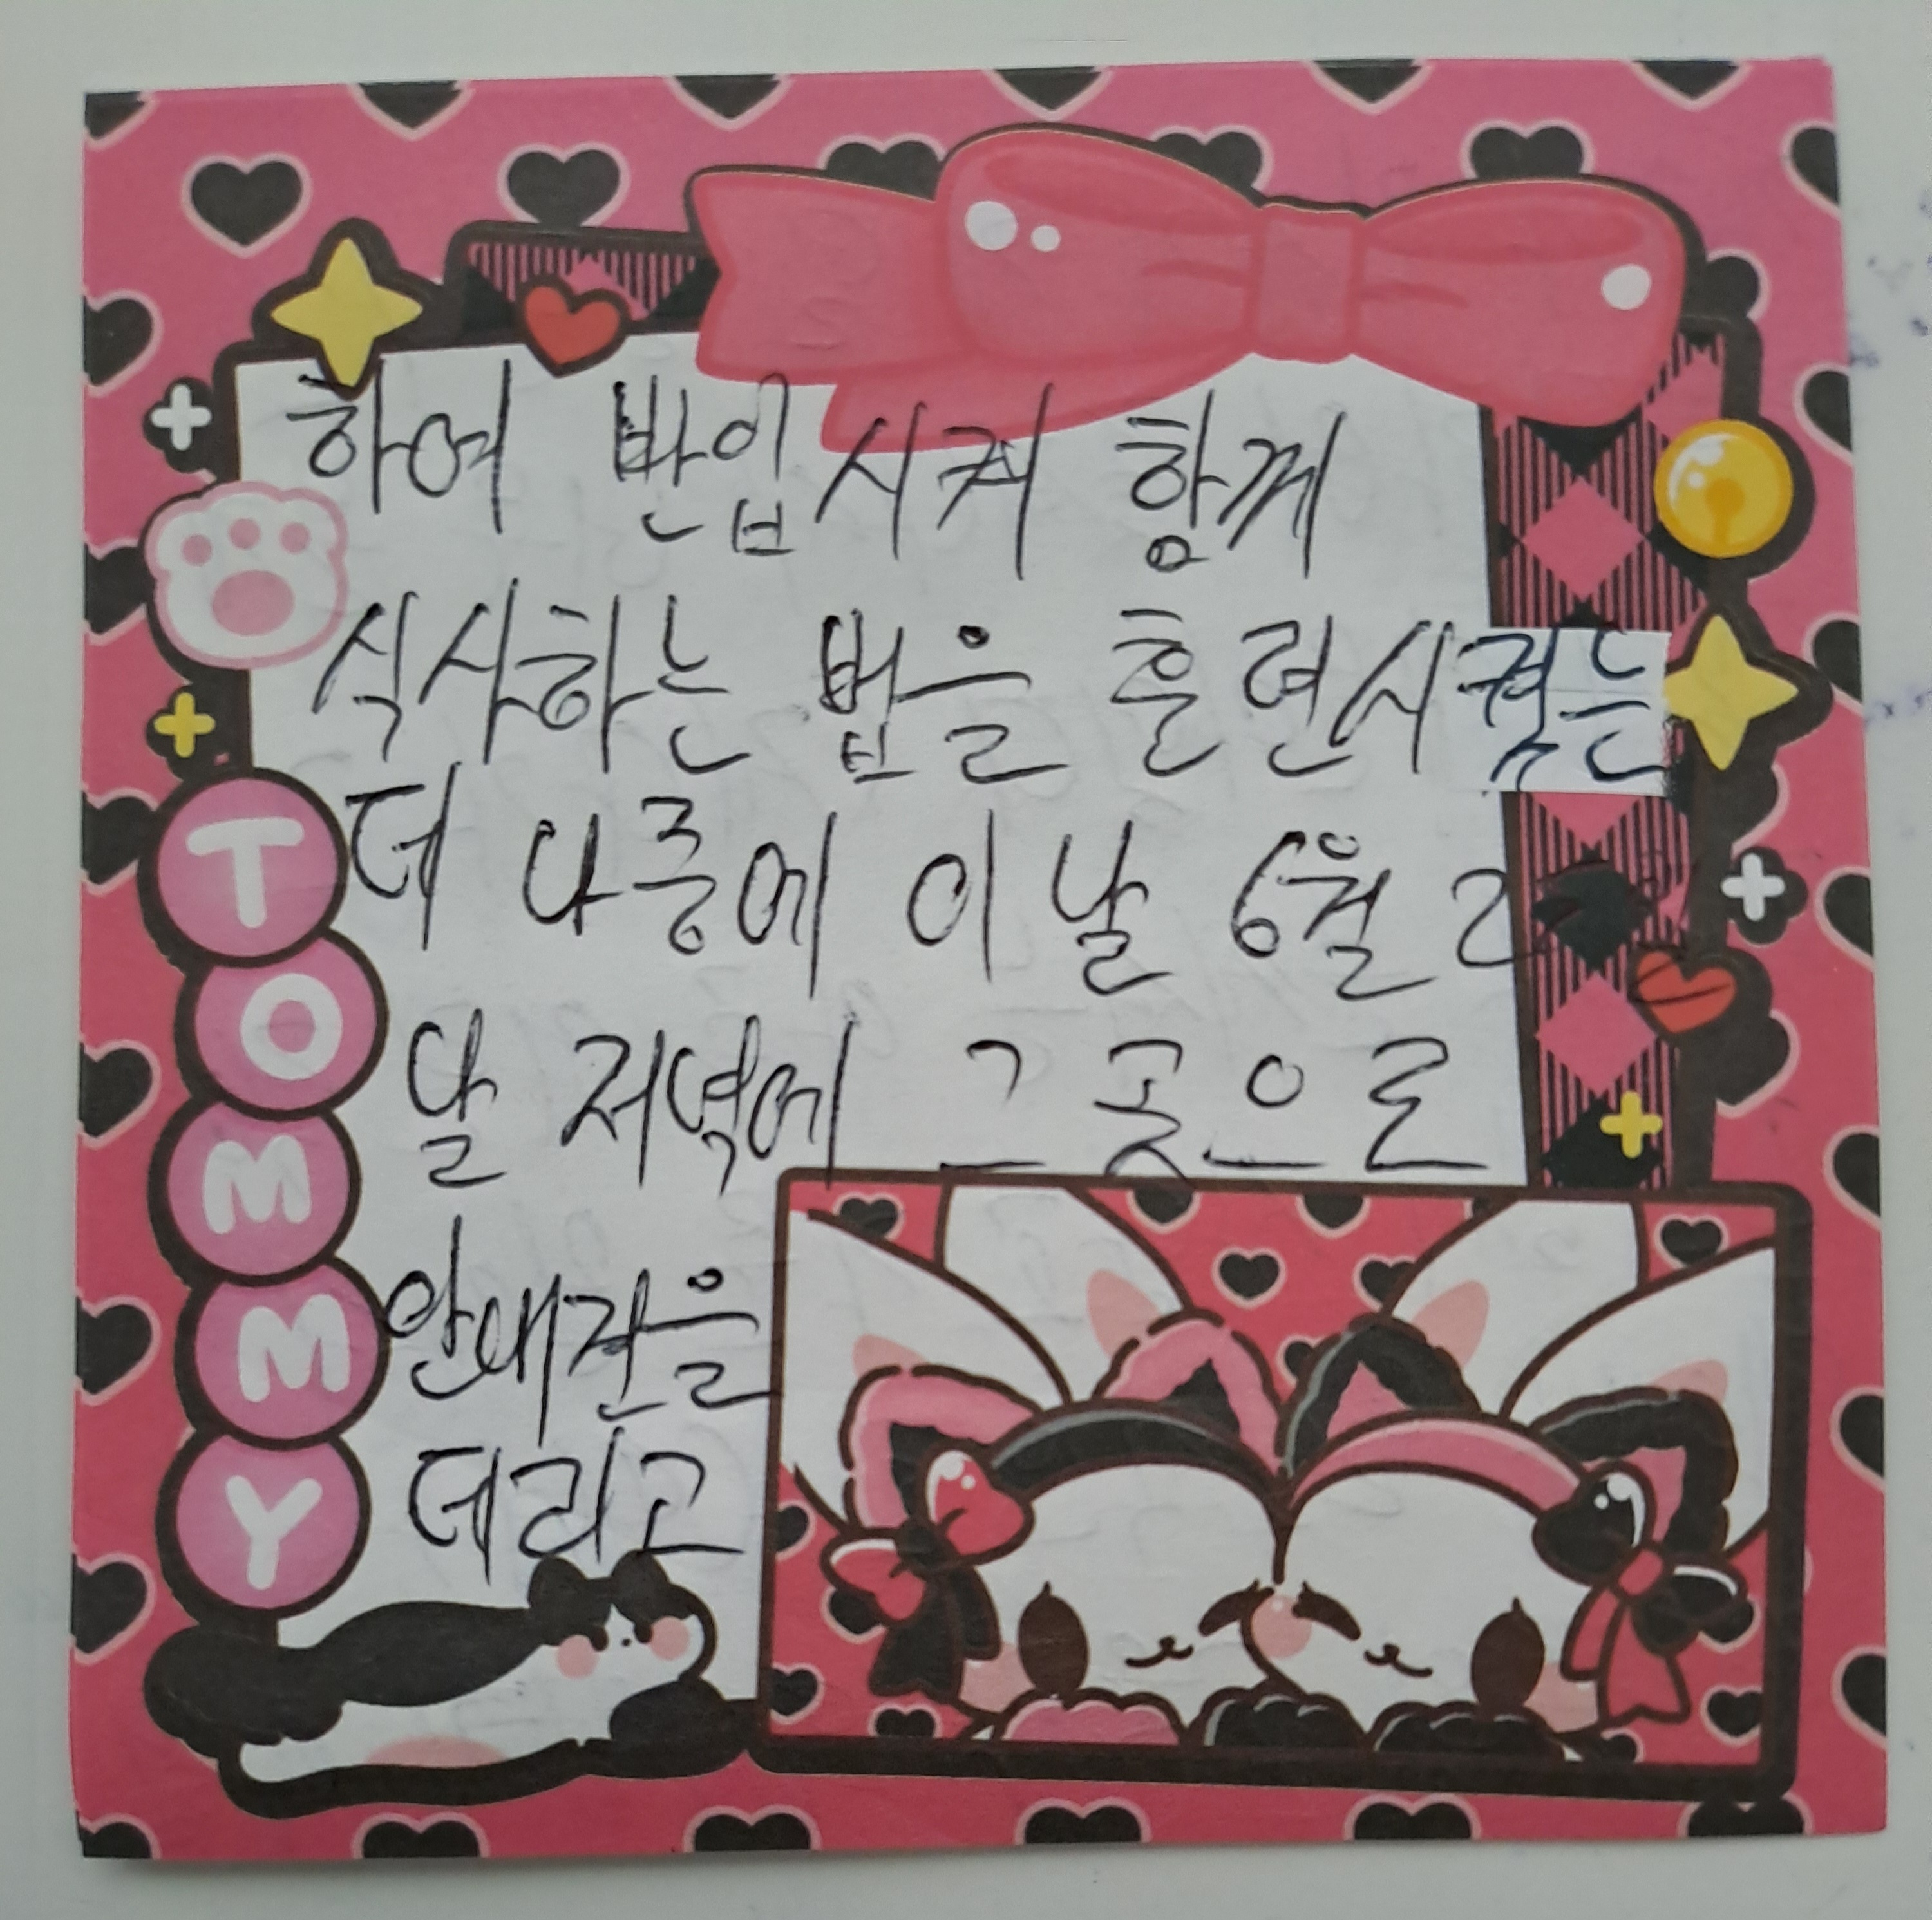 하여 반입시켜 함께
식사하는 법을 훈련시켰는
데 나중에 이날 6월 2
날 저녁에 그 곳으로
안내견을
데리고
TOMMY